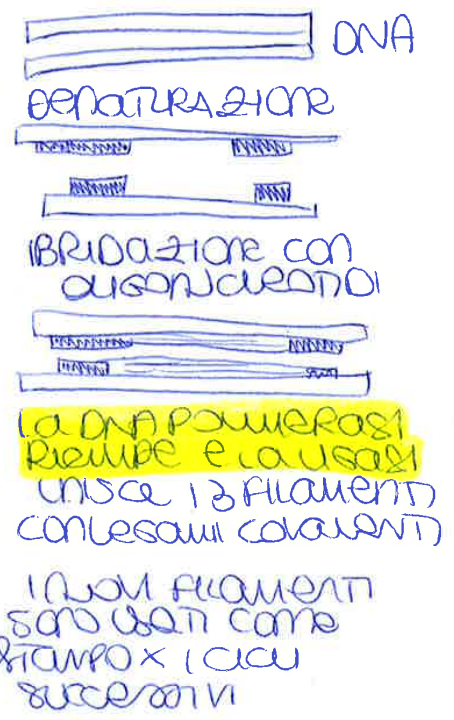 DNA
DENATURAZIONE
IBRIDAZIONE CON
OLIGONUCLEOTIDI
LA DNA POLIMERASI
RIEMPE E LA LIGASI
UNISCE I 3 FILAMENTI
CON LEGAMI COVALENTI
I NUOVI FILAMENTI
SONO USATI COME
STAMPO X I CICLI
SUCCESSIVI